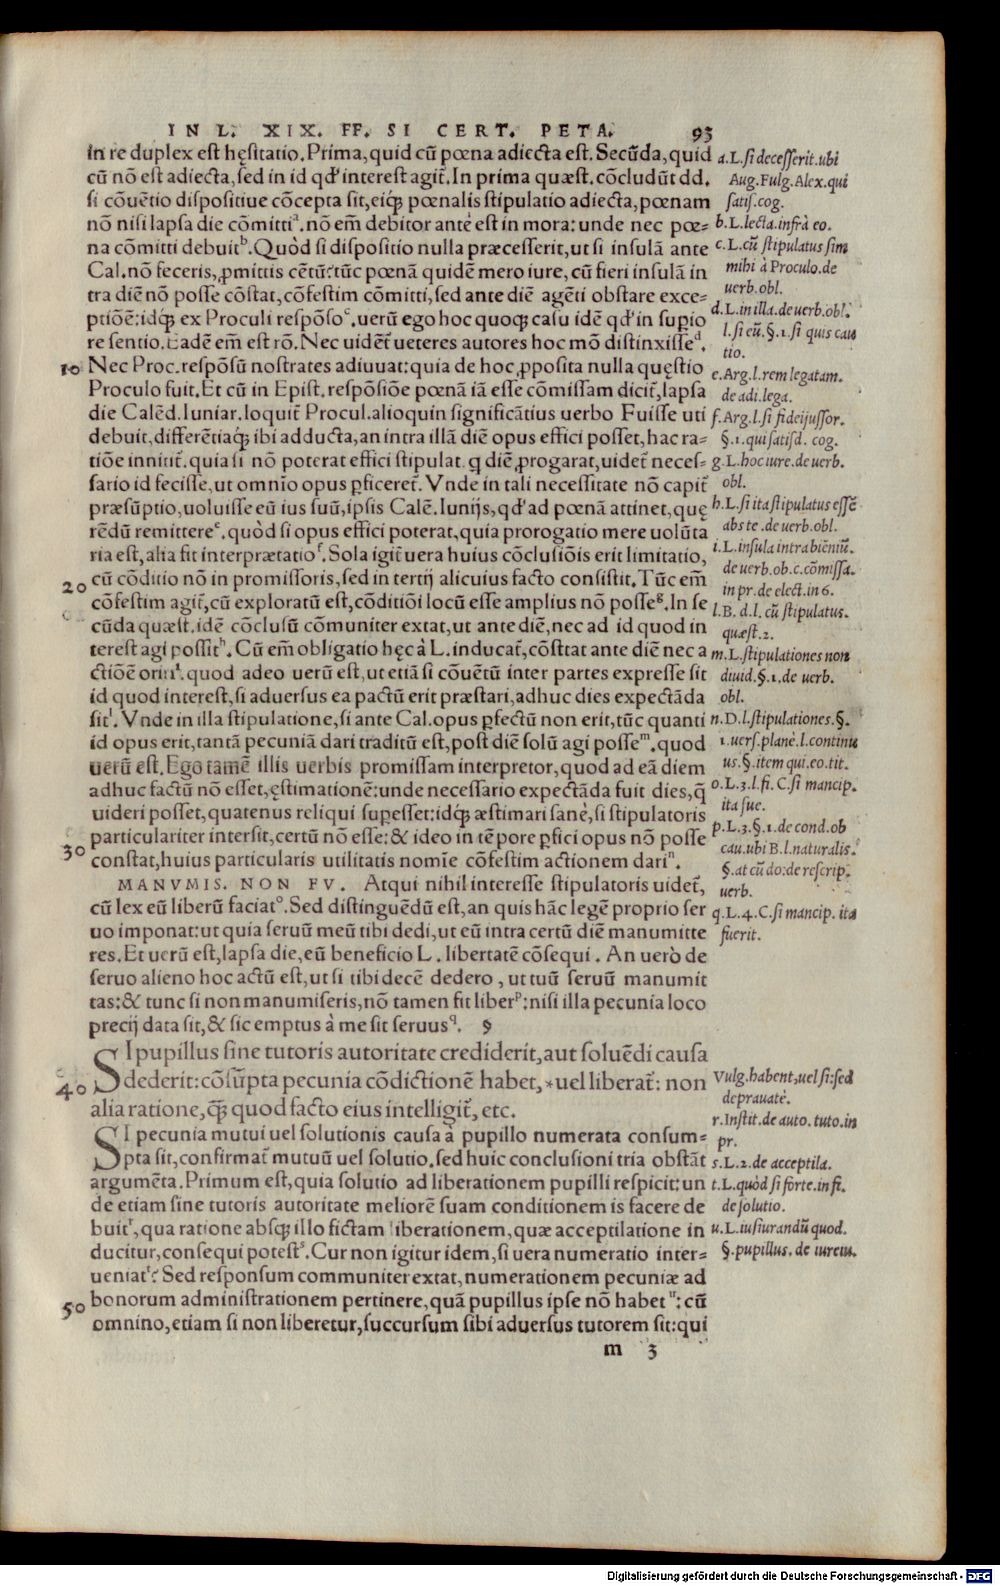 IN L. XIX. FF. SI CERT. PETA. 93
in re duplex est hęsitatio. Prima, quid cū pœna adiecta est. Secūda, quid
cū nō est adiecta, sed in id qd' interest agit̃. In prima quæst. cōcludūt dd.
si cōuētio dispositiue cōcepta sit, eiq; pœnalis stipulatio adiecta, pœnam
nō nisi lapsa die cōmittiᵃ. nō em̄ debitor ante est in mora: unde nec pœ=
na cōmitti debuitᵇ. Quòd si dispositio nulla præcesserit, ut si insulā ante
Cal. nō feceris, ꝓmittis cētū: tūc pœnā quidē mero iure, cū fieri insulā in
tra diē nō posse cōstat, cōfestim cōmitti, sed ante diē agēti obstare exce=
ptiōē: idq; ex Proculi respōsoᶜ. uerū ego hoc quoq; casu idē qd' in supio
re sentio. Eadē em̄ est rō. Nec uidet̃ ueteres autores hoc mō distinxisseᵈ.
10 Nec Proc. respōsū nostrates adiuuat: quia de hoc ꝓposita nulla quęstio
Proculo fuit. Et cū in Epist. respōsiōe pœnā iā esse cōmissam dicit̃, lapsa
die Calēd. Iuniar. loquit̃ Procul. alioquin significātius uerbo Fuisse uti
debuit, differētiaq; ibi adducta, an intra illā diē opus effici posset, hac ra=
tiōe innitit̃. quia si nō poterat effici stipulat. q diē ꝓrogarat, uidet̃ neces=
sario id fecisse, ut omnīo opus ꝑficeret̃. Vnde in tali necessitate nō capit̃
præsūptio, uoluisse eū ius suū, ipsis Calē. Iunijs, qd' ad pœnā attinet, quę
rēdū remittereᵉ. quòd si opus effici poterat, quia prorogatio mere uolūta
ria est, alia fit interprætatioᶠ. Sola igit̃ uera huius cōclusiōis erit limitatio,
20 cū cōditio nō in promissoris, sed in tertij alicuius facto consistit. Tūc em̄
cōfestim agit̃, cū exploratū est, cōditiōi locū esse amplius nō posseᵍ. In se
cūda quæst. idē cōclusū cōmuniter extat, ut ante diē, nec ad id quod in
terest agi possitʰ. Cū em̄ obligatio hęc à L. inducat̃, cōsttat ante diē nec a
ctiōē oririⁱ. quod adeo uerū est, ut etiā si cōuētū inter partes expresse sit
id quod interest, si aduersus ea pactū erit præstari, adhuc dies expectāda
sitˡ. Vnde in illa stipulatione, si ante Cal. opus ꝑfectū non erit, tūc quanti
id opus erit, tantā pecuniā dari traditū est, post diē solū agi posseᵐ. quod
uerū est. Ego tamē illis uerbis promissam interpretor, quod ad eā diem
adhuc factū nō esset, ęstimationē: unde necessario expectāda fuit dies, q̄
uideri posset, quatenus reliqui supesset: idq; æstimari sanè, si stipulatoris
particulariter intersit, certū nō esse: & ideo in tēpore ꝑfici opus nō posse
30 constat, huius particularis utilitatis nomīe cōfestim actionem dariⁿ.
MANVMIS. NON FV. Atqui nihil interesse stipulatoris uidet̃,
cū lex eū liberū faciatᵒ. Sed distinguēdū est, an quis hāc legē proprio ser
uo imponat: ut quia seruū meū tibi dedi, ut eū intra certū diē manumitte
res. Et uerū est, lapsa die, eū beneficio L. libertatē cōsequi. An uerò de
seruo alieno hoc actū est, ut si tibi decē dedero, ut tuū seruū manumit
tas: & tunc si non manumiseris, nō tamen fit liberᵖ: nisi illa pecunia loco
precij data sit, & sic emptus à me sit seruus^q. §
SI pupillus sine tutoris autoritate crediderit, aut soluēdi causa
40 dederit: cōsūpta pecunia cōdictionē habet, *uel liberat̃: non
alia ratione, q̄ quod facto eius intelligit̃, etc.
SI pecunia mutui uel solutionis causa à pupillo numerata consum=
pta sit, confirmat̃ mutuū uel solutio. sed huic conclusioni tria obstāt
argumēta. Primum est, quia solutio ad liberationem pupilli respicit: un
de etiam sine tutoris autoritate meliorē suam conditionem is facere de
buitʳ, qua ratione absq; illo fictam liberationem, quæ acceptilatione in
ducitur, consequi potestˢ. Cur non igitur idem, si uera numeratio inter=
ueniatᵗ? Sed responsum communiter extat, numerationem pecuniæ ad
50 bonorum administrationem pertinere, quā pupillus ipse nō habetᵘ: cū
omnino, etiam si non liberetur, succursum sibi aduersus tutorem sit: qui
m 3
a. L. si decesserit. ubi
Aug. Fulg. Alex. qui
satis. cog.
b. L. lecta. infrà eo.
c. L. cū stipulatus sim
mihi à Proculo. de
uerb. obl.
d. L. in illa. de uerb. obl.
l. si eū. §. 1. si quis cau
tio.
e. Arg. l. rem legatam.
de adi. lega.
f. Arg. l. si fideiussor.
§. 1. qui satisd. cog.
g. L. hoc iure. de uerb.
obl.
h. L. si ita stipulatus essē
abs te. de uerb. obl.
i. L. insula intra biēniū.
de uerb. ob. c. cōmissa.
in pr. de elect. in 6.
l. B. d. l. cū stipulatus.
quæst. 2.
m. L. stipulationes non
diuid. §. 1. de uerb.
obl.
n. D. l. stipulationes. §.
1. uers. planè. l. continu
us. §. item qui. eo. tit.
o. L. 3. l. fi. C. si mancip.
ita fue.
p. L. 3. §. 1. de cond. ob
cau. ubi B. l. naturalis.
§. at cū do: de rescrip.
uerb.
q. L. 4. C. si mancip. ita
fuerit.
Vulg. habent, uel si: sed
deprauatè.
r. Instit. de auto. tuto. in
pr.
s. L. 2. de acceptila.
t. L. quòd si forte. in fi.
de solutio.
u. L. iusiurandū quod.
§. pupillus. de iureiu.
Digitalisierung gefördert durch die Deutsche Forschungsgemeinschaft - DFG